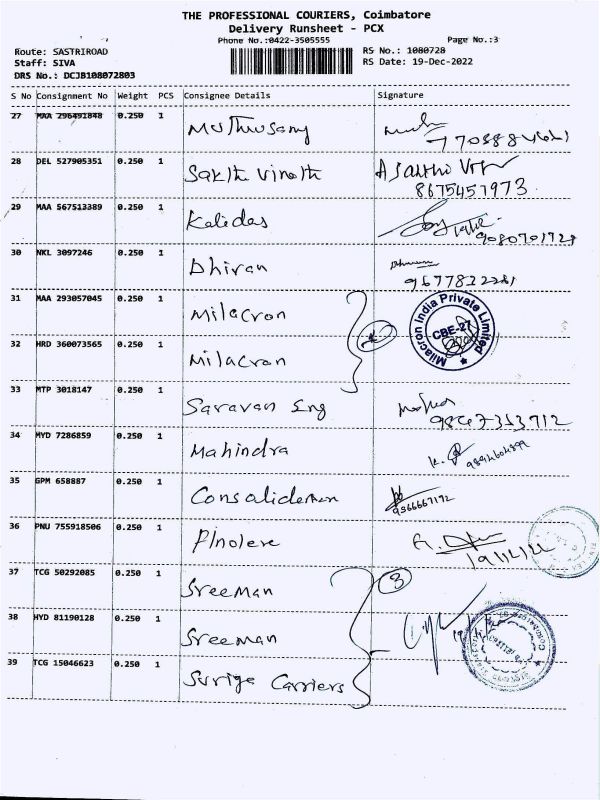 THE PROFESSIONAL COURIERS, Coimbatore
Delivery Runsheet - PCX
Phone No.:0422-3505555
Page No.:3
Route: SASTRIROAD
RS No.: 1080728
Staff: SIVA
RS Date: 19-Dec-2022
DRS No.: DCJB108072803
S No Consignment No Weight PCS Consignee Details Signature
27 MAA 296491848 0.250 1 Muthusamy
28 DEL 527905351 0.250 1 Sakthi Vinoth
8675457973
29 MAA 567513389 0.250 1 Kalidas
30 NKL 3097246 0.250 1 Dhiran
31 MAA 293057045 0.250 1 Milacron
Milacron India Private Limited
CBE-27
32 HRD 360073565 0.250 1 Milacron
33 MTP 3018147 0.250 1 Saravan Eng
34 MYD 7286859 0.250 1 Mahindra
35 GPM 658887 0.250 1 Consalideman
9366667172
36 PNU 755918506 0.250 1 Pinolere
19/12/22
37 TCG 50292085 0.250 1 Sreeman
3
38 HYD 81190128 0.250 1 Sreeman
39 TCG 15046623 0.250 1 Suriya Carriers